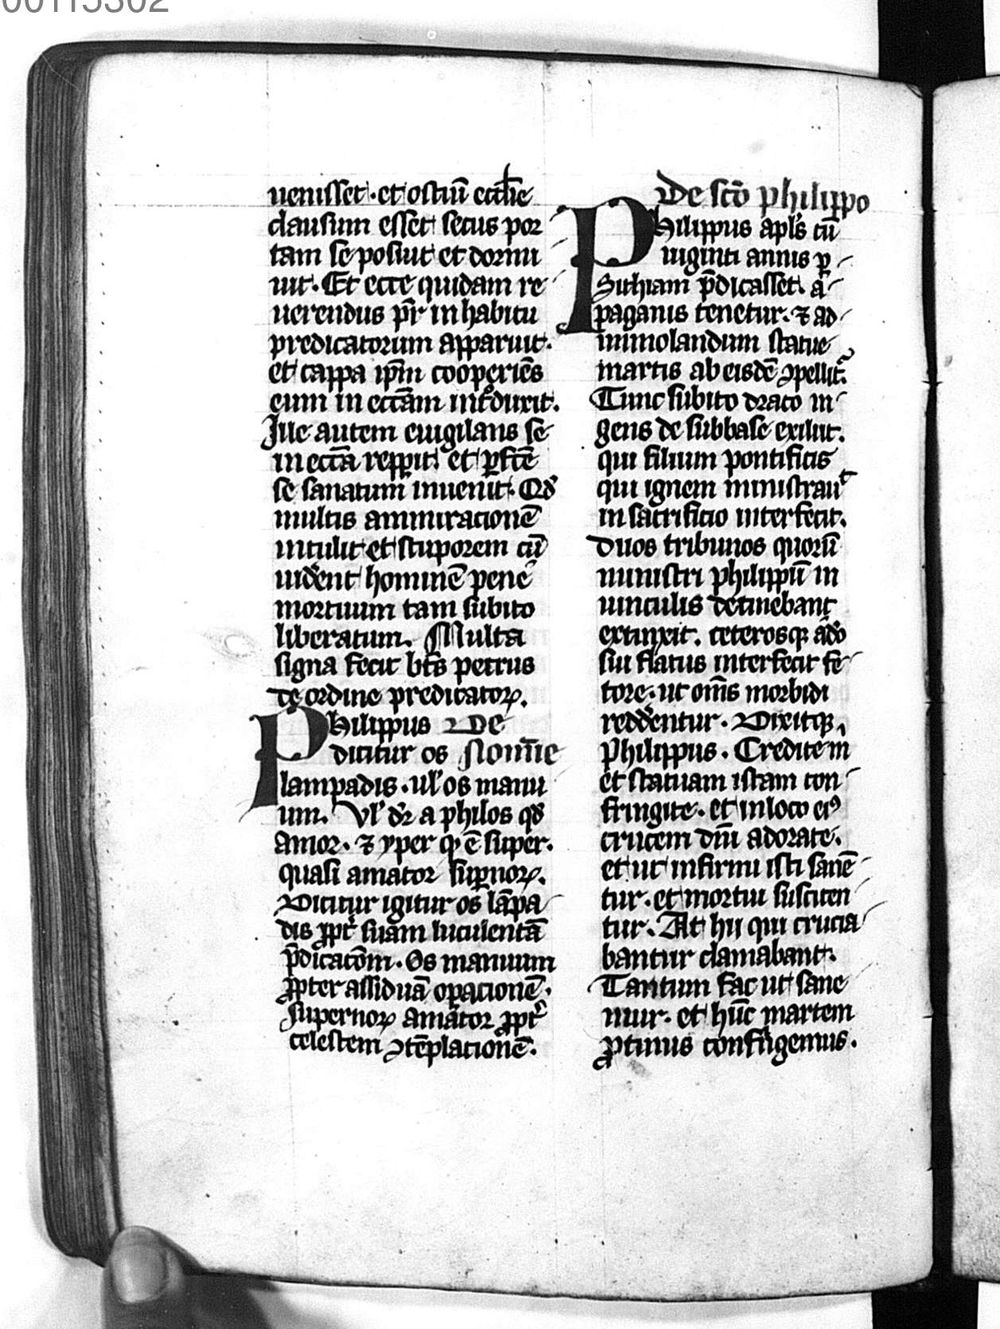 00115302
uenisset. et ostiū eccl̄ie
clausum esset secus por
tam se posuit et dormi
uit. Et ecce quidam re
uerendus pr̄ in habitu
predicatorum apparuit.
et cappa ip̄m cooperiēs
eum in eccām introduxit.
Ille autem euigilans se
in eccā repperit et ꝑfcē
se sanatum inuenit. Qd̄
multis ammiracionē
intulit et stuporem cū
uidēnt hominē pene
mortuum tam subito
liberatum. Multa
signa fecit bt̄s petrus
de ordine predicatoꝝ.
Philippus De
dicitur os Nomīe
lampadis. ul' os manu
um. Vl' dr̄ a philos qd̄
amor. ⁊ yper qͦ ē super.
quasi amator suꝑnoꝝ.
Dicitur igitur os lāpa
dis ꝓpt̄ suam luculentā
p̄dicacōm. Os manuum
ꝓpter assiduā oꝑacionē.
supernoꝝ amator ꝓpt̄
celestem ꝯtēplacionē.
De scō philippo
Philippus apl's cū
uiginti annis ꝑ
Sithiam p̄dicasset. a
paganis tenetur. ⁊ ad
immolandum statue
martis ab eisdē ꝯpellit᷑.
Tunc subito draco in
gens de subbase exiliit.
qui filium pontificis
qui ignem ministrau͛t
in sacrificio interfecit.
Duos tribunos quorū
ministri philippū in
uinculis detinebant
extinxit. ceterosqꝫ adō
sui flatus interfecit fe
tore. ut om̄s morbidi
reddēntur. Dixitqꝫ
Philippus. Credite m
et statuam istam con
fringite. et in loco eiꝰ
crucem dn̄i adorate.
et ut infirmi isti sanē
tur. et mortui susciten
tur. At hii qui crucia
bantur clamabant.
Tantum fac ut sane
mur. et hūc martem
ꝓtinus confringemus.